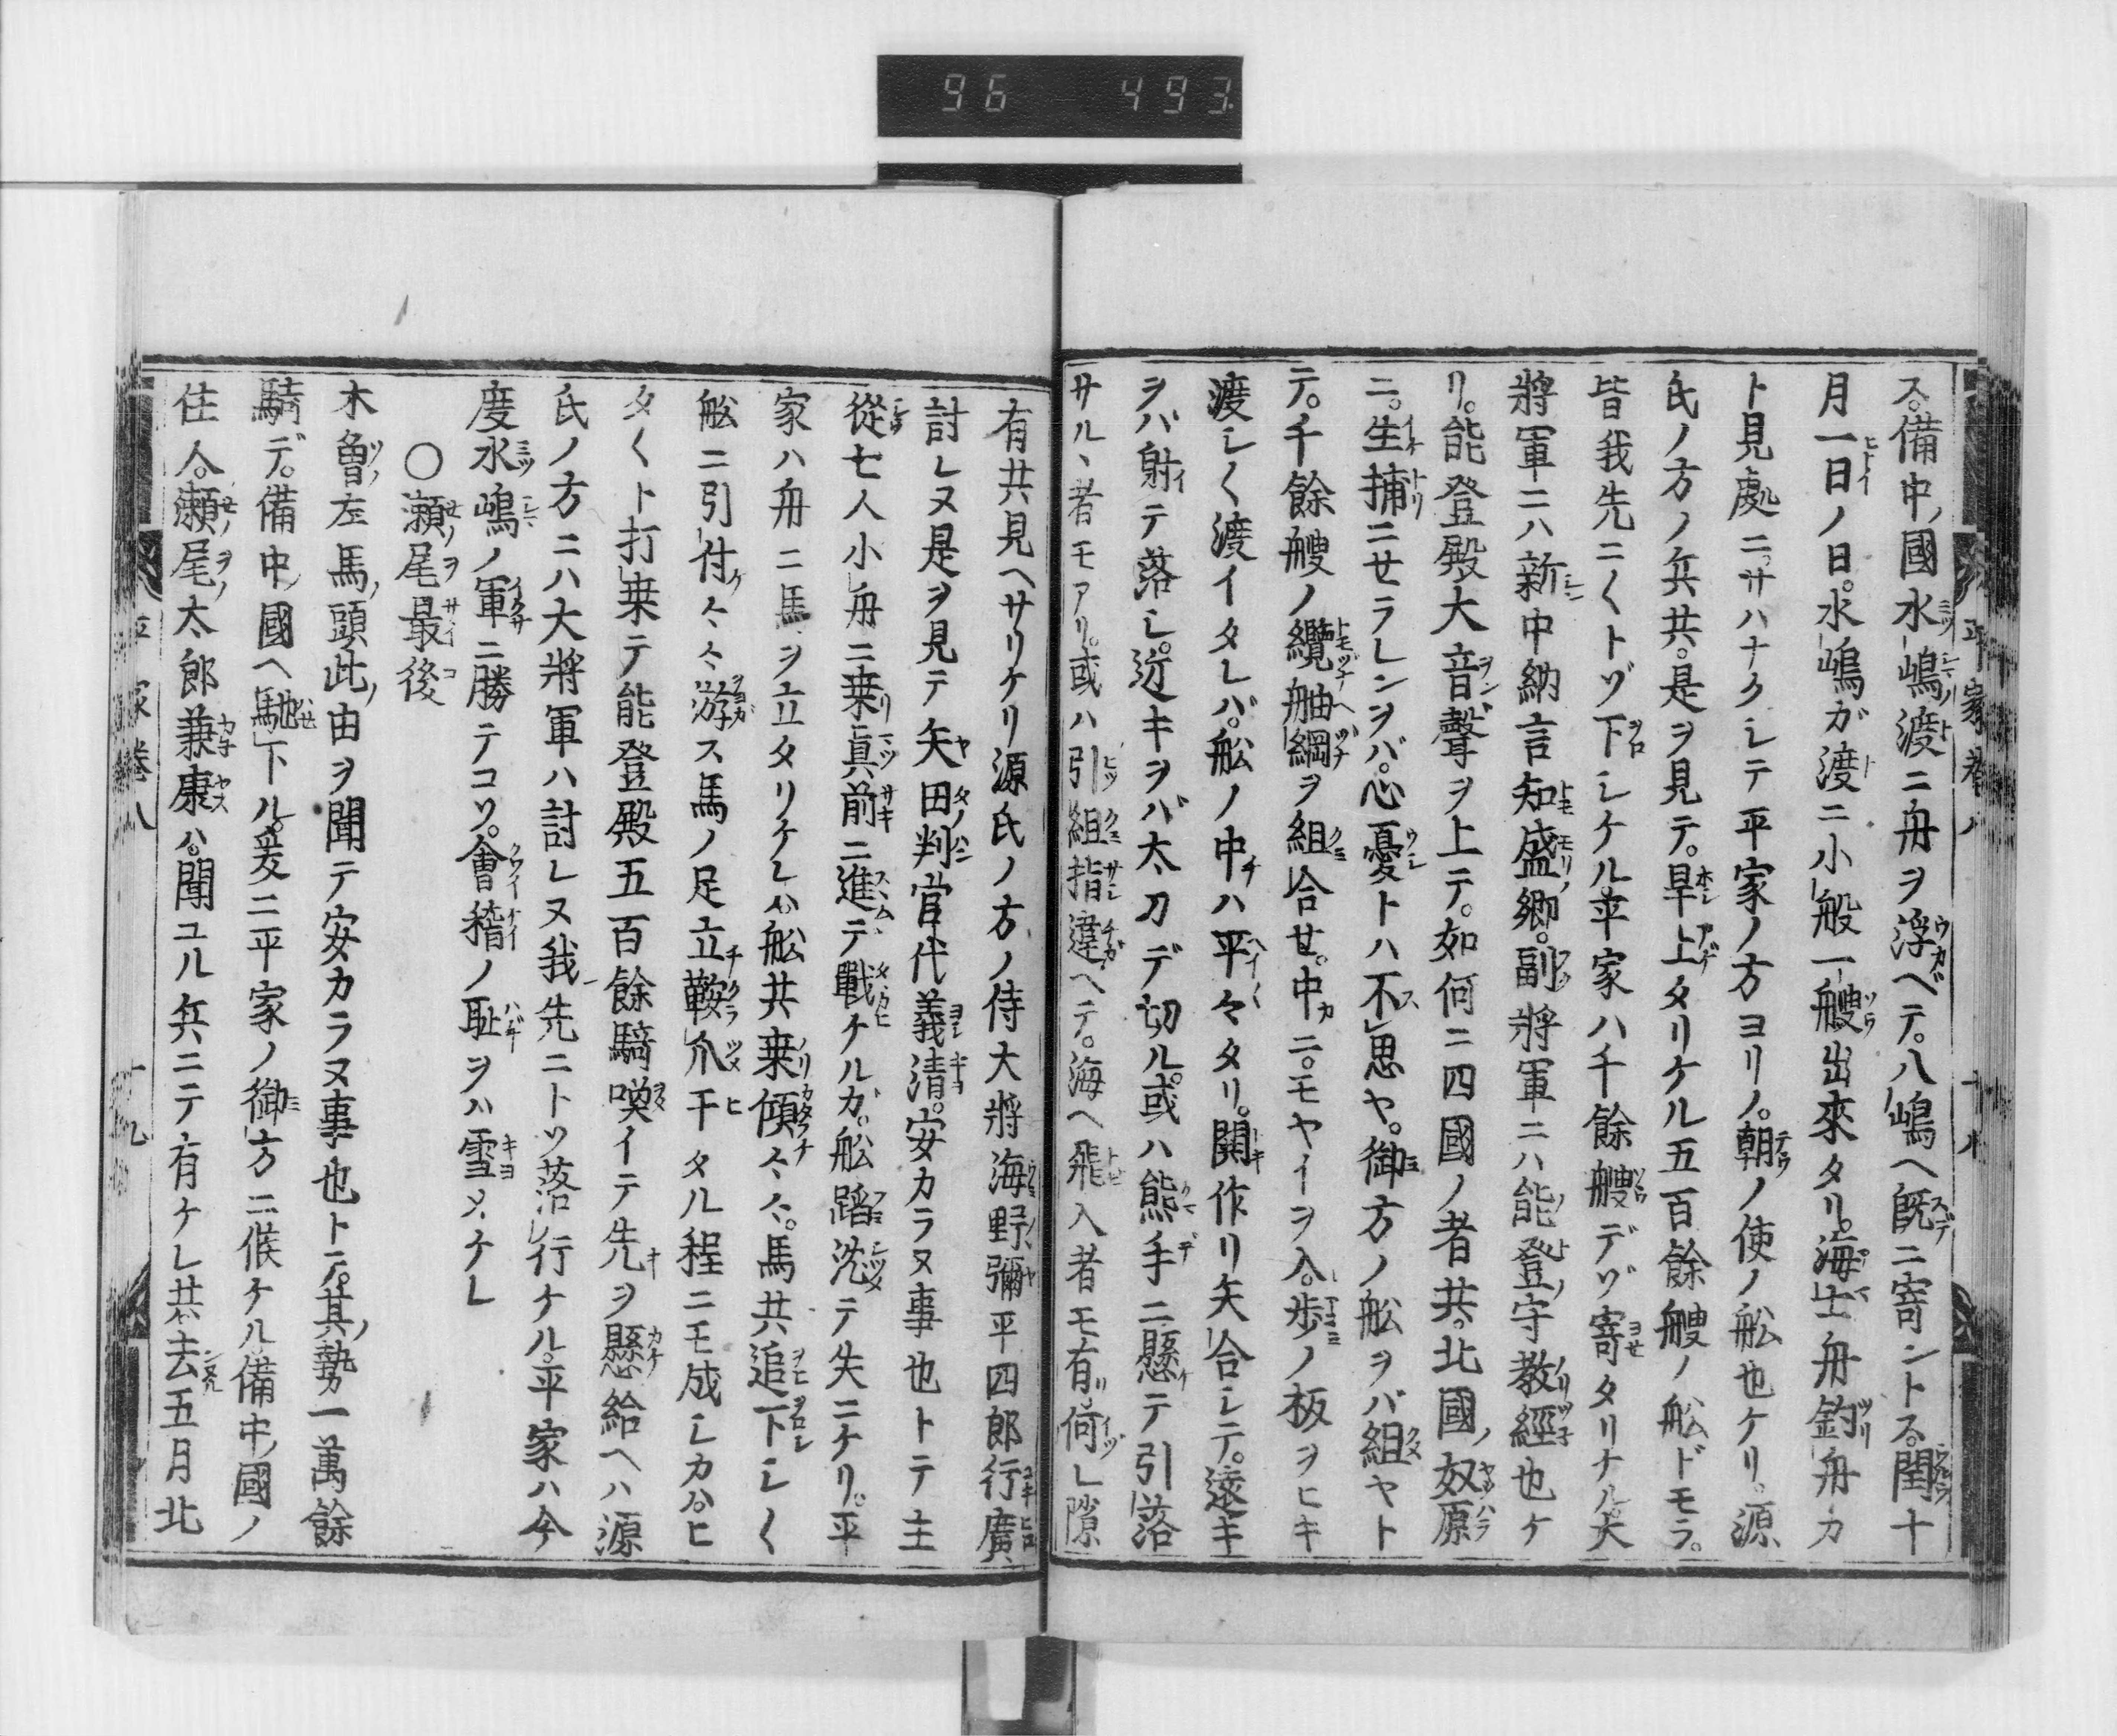 96 493
ス。備中ノ國水嶋渡ニ舟ヲ浮ベテ。八嶋ヘ既ニ寄ントス。閏十
月一日ノ日。水嶋ガ渡ニ小船一艘出來タリ。海士舟釣舟カ
ト見處ニ。サハナクシテ平家ノ方ヨリノ。朝ノ使ノ舩也ケリ。源
氏ノ方ノ兵共。是ヲ見テ。早上タリケル五百餘艘ノ舩ドモヲ。
皆我先ニ〱トゾ下シケル。平家ハ千餘艘デゾ寄タリケル。大
將軍ニハ新中納言知盛ノ卿。副將軍ニハ能登ノ守教經也ケ
リ。能登殿大音聲ヲ上テ。如何ニ四國ノ者共。北國ノ奴原
ニ。生捕ニセラレンヲバ。心憂トハ不思ヤ。御方ノ舩ヲバ組ヤト
テ。千餘艘ノ纜舳綱ヲ組合セ。中ニ。モヤイヲ入。歩ノ板ヲヒキ
渡シ〱渡イタレバ。舩ノ中ハ平々タリ。鬨作リ矢合シテ。遠キ
ヲバ射テ落シ。近キヲバ太刀デ切ル。或ハ熊手ニ懸テ引落
サルヽ者モアリ。或ハ引組指違ヘテ。海ヘ飛入者モ有。何レ隙
平家卷八
有共見ヘサリケリ源氏ノ方ノ侍大將海野ノ彌平四郎行廣
討レヌ是ヲ見テ矢田ノ判官代義清。安カラヌ事也トテ主
從七人小舟ニ乗リ眞前ニ進テ戰ケルガ。舩蹈沈テ失ニケリ。平
家ハ舟ニ馬ヲ立タリケレハ舩共乗傾々々。馬共追下シ〱
舩ニ引付ケ々々游ス馬ノ足立鞍爪干タル程ニモ成シカハ。ヒ
タ〱ト打乗テ能登殿五百餘騎喚イテ先ヲ懸給ヘハ源
氏ノ方ニハ大將軍ハ討レヌ我先ニトソ落行ケル。平家ハ今
度水嶋ノ軍ニ勝テコソ。會稽ノ耻ヲハ雪メケレ
○瀬ノ尾最後
木曾ノ左馬ノ頭此ノ由ヲ聞テ安カラヌ事也トテ。其ノ勢一萬餘
騎デ。備中ノ國ヘ馳下ル。爰ニ平家ノ御方ニ候ケル備中ノ國ノ
住人。瀬ノ尾ノ太郎兼康ハ。聞ユル兵ニテ有ケレ共去五月北
平家卷八
十九